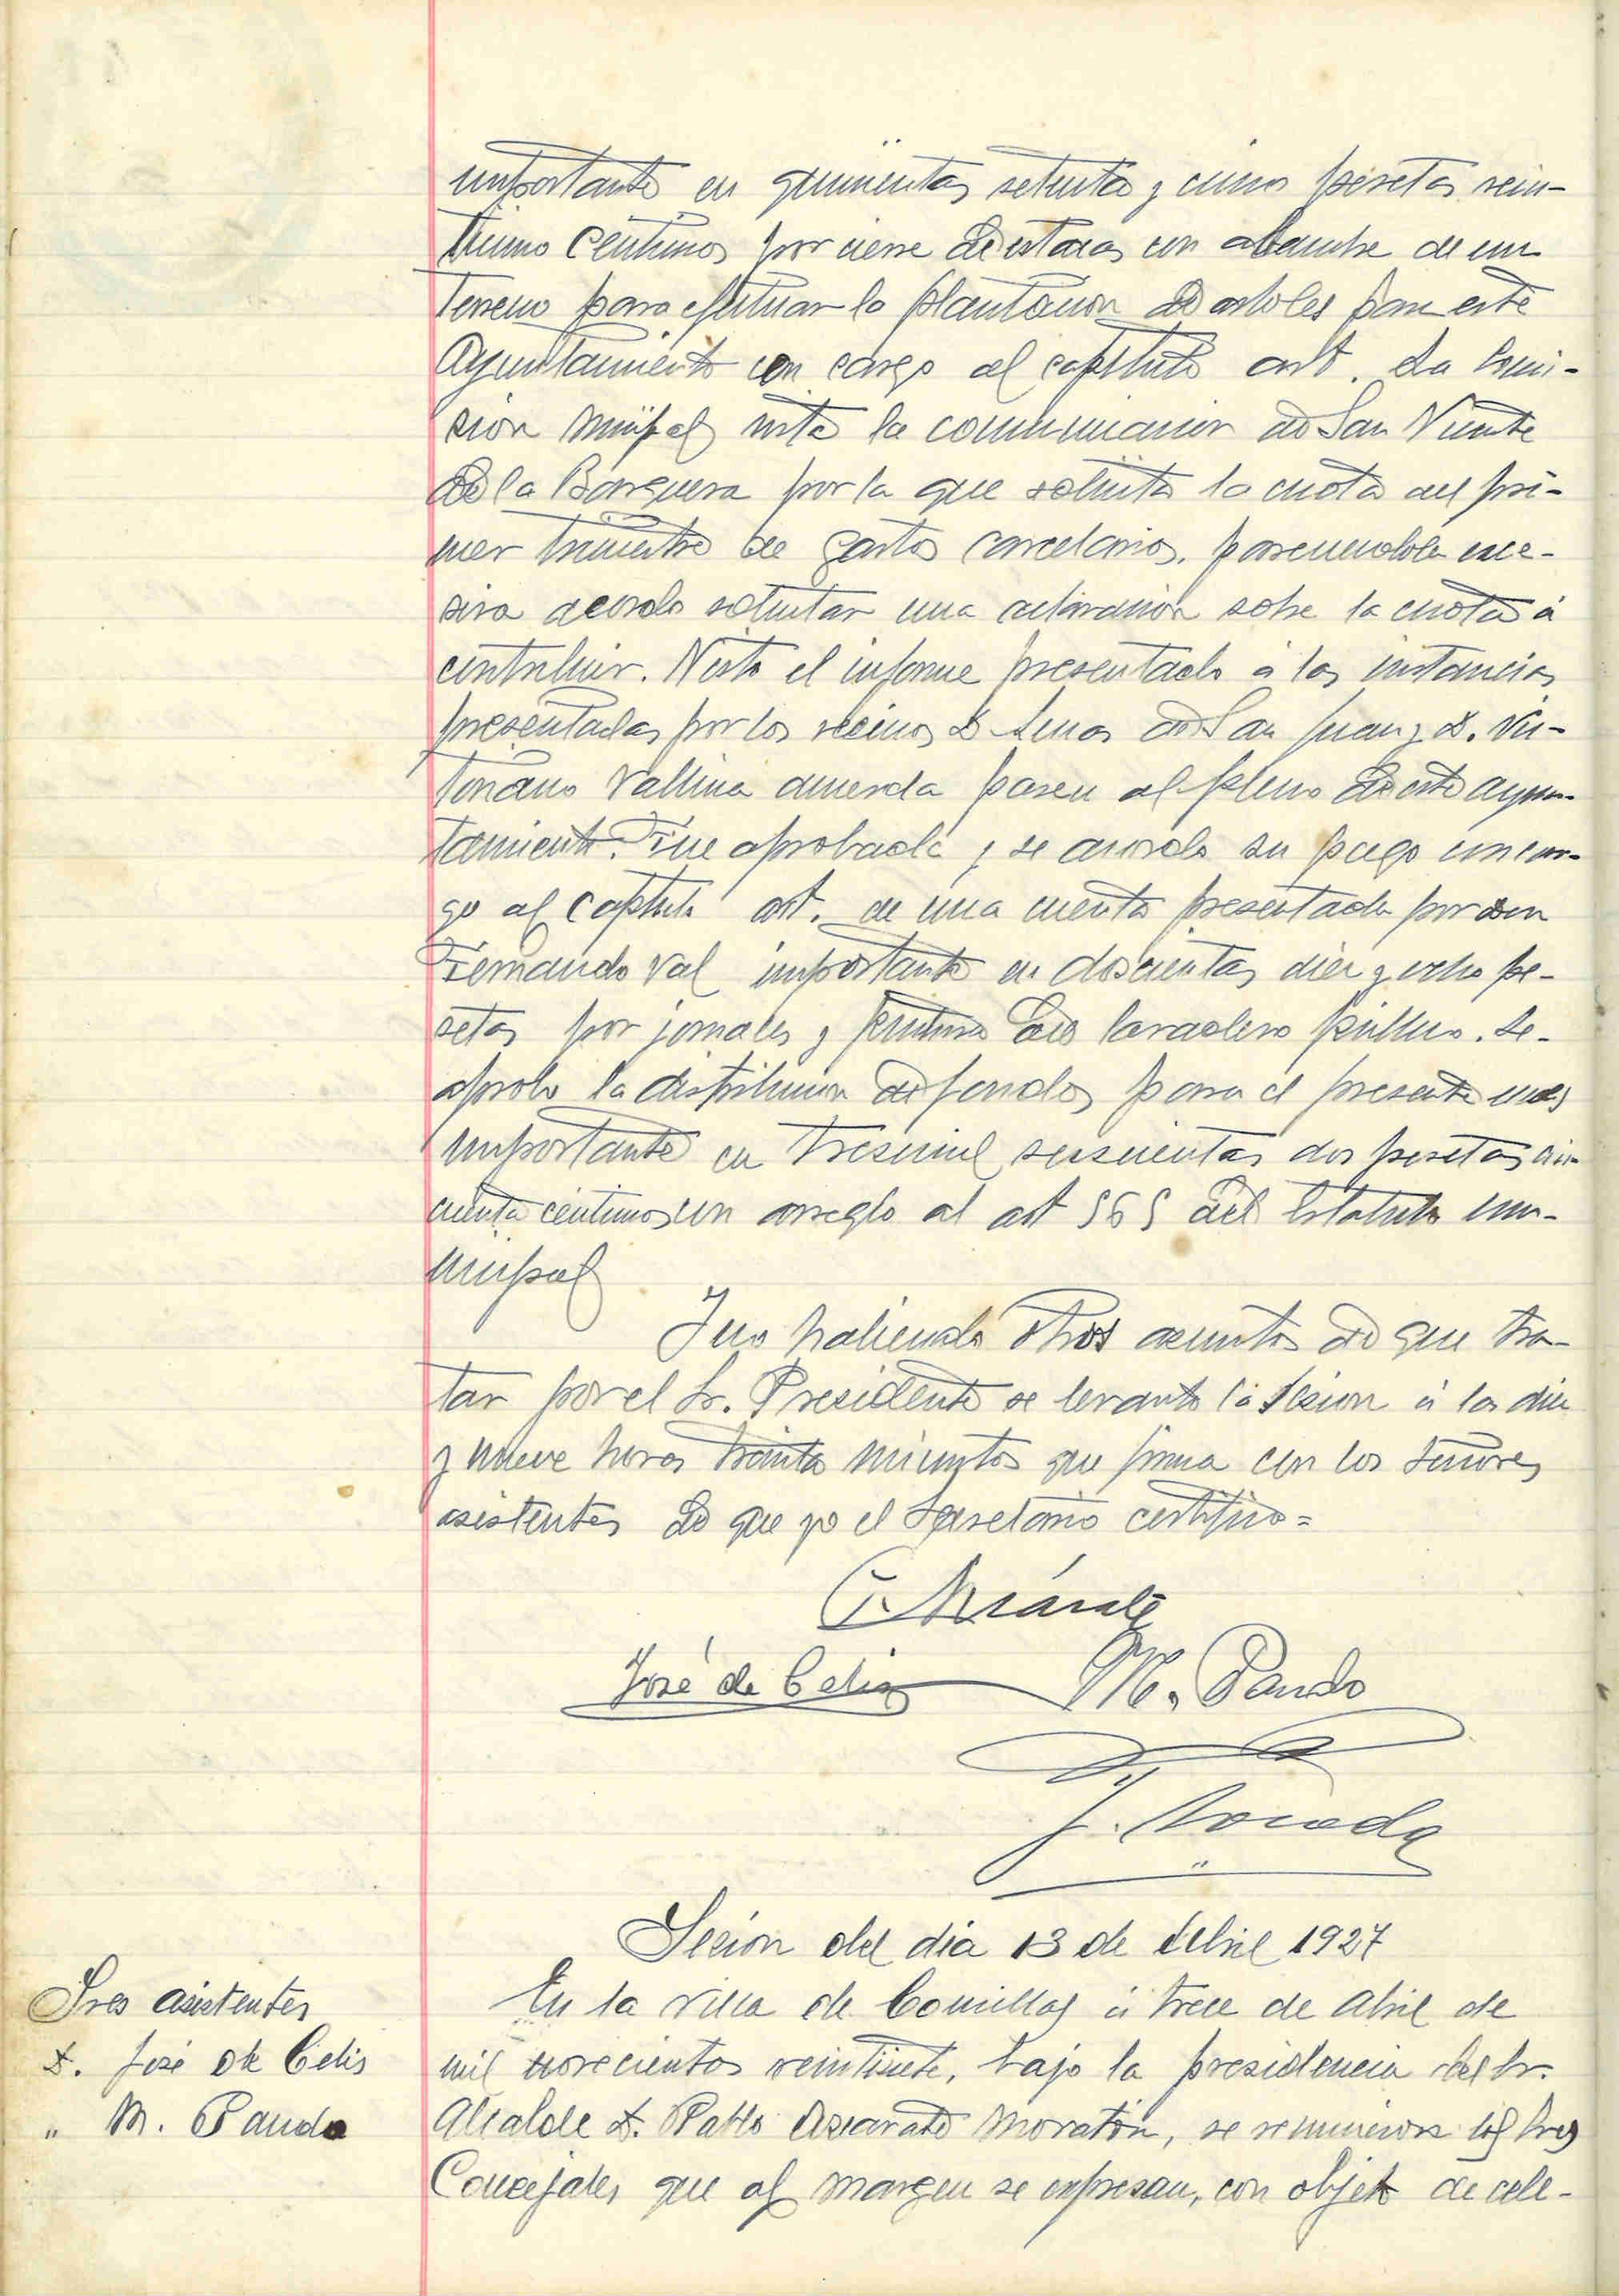 importante en quinientas setenta y cinco pesetas vein-
ticinco centimos por cierre de estacas con alambre de un
terreno para efectuar la plantacion de arboles para este
Ayuntamiento con cargo al capitulo art. La Comi-
sion munipal vista la comunicacion de San Vicente
de la Barquera por la que solicita la cuota del pri-
mer trimestre de gastos carcelarios, pareciendole exce-
siva acordo solicitar una aclaracion sobre la cuota á
contribuir. Visto el informe presentado á las instancias
presentadas por los vecinos D. de San Juan y D. Vic-
toriano Vallina acuerda pasen al pleno de este ayun-
tamiento. Fue aprobada y se acordo su pago con car-
go al capitulo art. de una cuenta presentada por don
Fernando Val importante en doscientas diez y ocho pe-
setas por jornales y pintura del lavadero publico. Se
aprobo la distribucion de fondos para el presente mes
importante en tresmil seiscientas dos pesetas cin-
cuenta centimos con arreglo al art 565 del Estatuto mu-
nicipal
Y no habiendo otros asuntos de que tra-
tar por el Sr. Presidente se levanto la sesion á las diez
y nueve horas treinta minutos que firma con los señores
asistentes de que yo el Secretario certifico=
José de Celis M. Pando
Sesion del dia 13 de Abril 1927
Sres asistentes
D. José de Celis
" M. Pando
En la villa de Comillas á trece de Abril de
mil novecientos veintisiete, bajo la presidencia del Sr.
Alcalde D. Pablo Azcarate Moratón, se reunieron los Sres
Concejales que al margen se expresan, con objeto de cele-